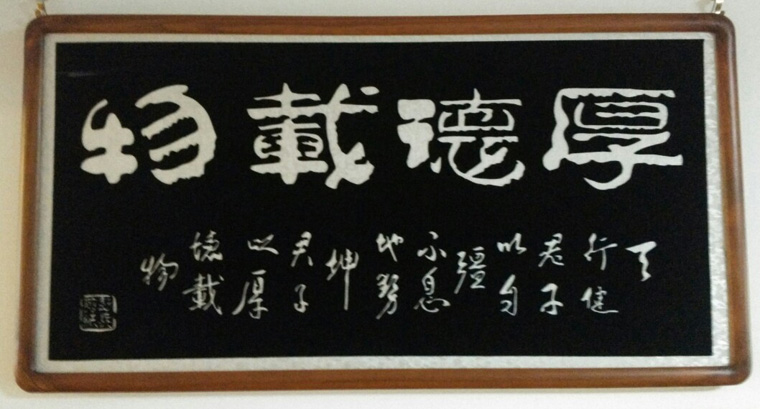 厚德載物
天
行健
君子
以自
彊
不息
地勢
坤
君子
以厚
德載
物